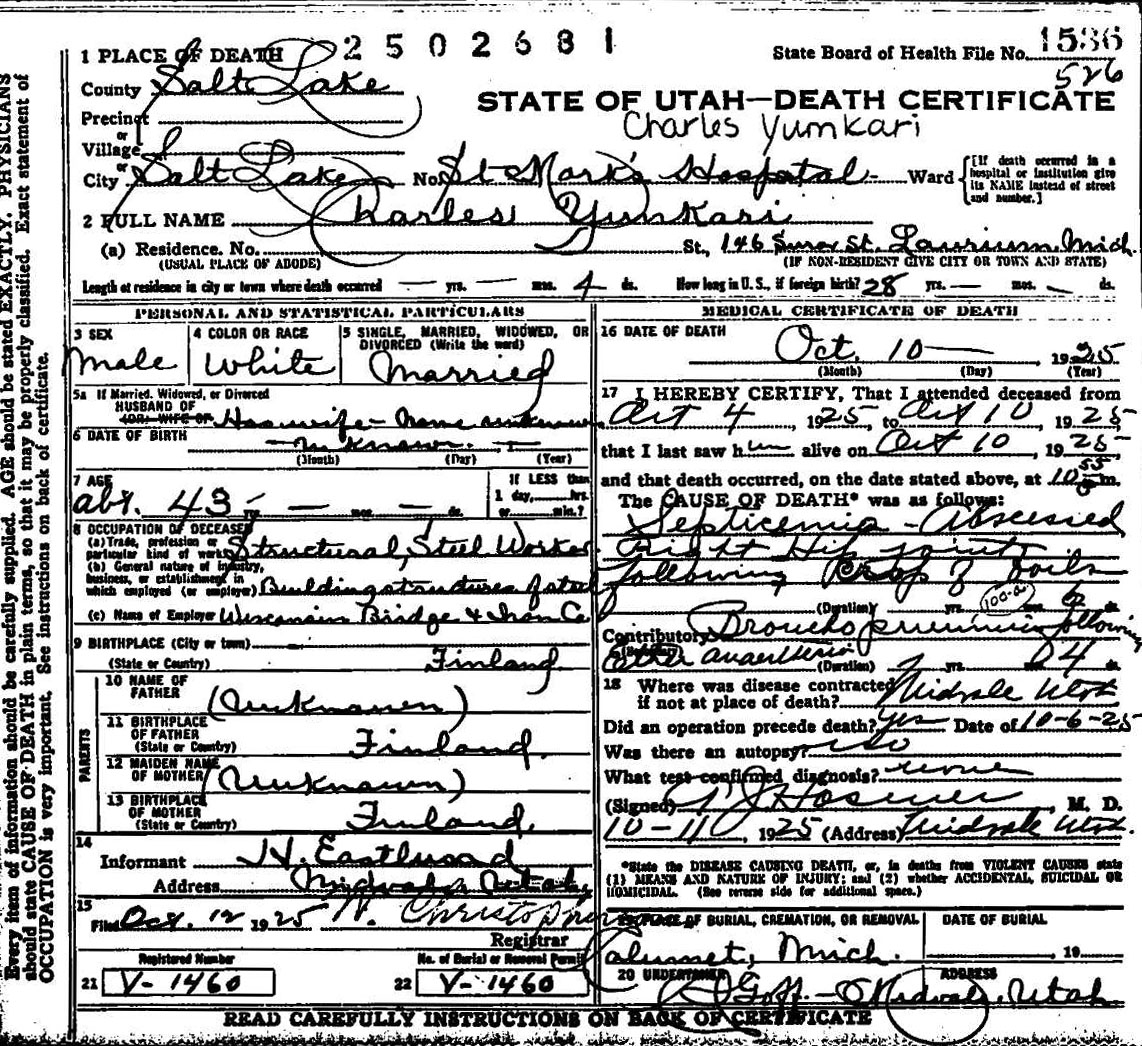 2502681
State Board of Health File No. 1536
526
1 PLACE OF DEATH
County Salt Lake
STATE OF UTAH—DEATH CERTIFICATE
Charles Yumkari
Precinct
or
Village
or
City Salt Lake No. St Mark's Hospital Ward [If death occurred in a hospital or institution give its NAME instead of street and number.]
2 FULL NAME Charles Yunkari
(a) Residence. No. St., 146 St. Laurium, Mich
(USUAL PLACE OF ABODE) (IF NON-RESIDENT GIVE CITY OR TOWN AND STATE)
Length of residence in city or town where death occurred — yrs. — mos. 4 ds. How long in U. S., if foreign birth? 28 yrs. — mos. — ds.
PERSONAL AND STATISTICAL PARTICULARS
3 SEX
Male
4 COLOR OR RACE
White
5 SINGLE, MARRIED, WIDOWED, OR DIVORCED (Write the word)
Married
5a If Married, Widowed, or Divorced
HUSBAND OF
(OR) WIFE OF Housewife - Name unknown
6 DATE OF BIRTH
— unknown. —
(Month) (Day) (Year)
7 AGE
abt. 43 yrs. — mos. — ds.
If LESS than
1 day, hrs.
or min.?
8 OCCUPATION OF DECEASED
(a) Trade, profession or particular kind of work Structural Steel Worker
(b) General nature of industry, business, or establishment in which employed (or employer) Building structures of steel
(c) Name of Employer Wisconsin Bridge & Iron Co
9 BIRTHPLACE (City or town)
(State or Country) Finland
PARENTS
10 NAME OF FATHER (Unknown)
11 BIRTHPLACE OF FATHER
(State or Country) Finland.
12 MAIDEN NAME OF MOTHER (Unknown)
13 BIRTHPLACE OF MOTHER
(State or Country) Finland.
14
Informant H. Eastwood
Address Midvale Utah
15
Filed Oct. 12 1925
Registrar
Registered Number
21 V-1460
No. of Burial or Removal Permit
22 V-1460
MEDICAL CERTIFICATE OF DEATH
16 DATE OF DEATH
Oct. 10— 1925
(Month) (Day) (Year)
17 I HEREBY CERTIFY, That I attended deceased from
Oct 4 1925, to Oct 10 1925
that I last saw him alive on Oct 10, 1925
and that death occurred, on the date stated above, at 10 55 m.
The CAUSE OF DEATH* was as follows:
Septicemia - Abscessed
Right Hip joint
following Crop of boils
(Duration) yrs. mos. 6 ds.
Contributory Broncho pneumonia following
ether anaesthesia (Duration) yrs. 4 ds.
18 Where was disease contracted
if not at place of death? Midvale Utah
Did an operation precede death? yes Date of 10-6-25
Was there an autopsy? no
What test confirmed diagnosis? none
(Signed) M. D.
10-11, 1925 (Address) Midvale Utah.
*State the DISEASE CAUSING DEATH, or, in deaths from VIOLENT CAUSES state
(1) MEANS AND NATURE OF INJURY; and (2) whether ACCIDENTAL, SUICIDAL OR
HOMICIDAL. (See reverse side for additional space.)
PLACE OF BURIAL, CREMATION, OR REMOVAL
Calumet, Mich.
DATE OF BURIAL
19
20 UNDERTAKER ADDRESS
Goff - Midvale, Utah
READ CAREFULLY INSTRUCTIONS ON BACK OF CERTIFICATE
Every item of information should be carefully supplied. AGE should be stated EXACTLY. PHYSICIANS
should state CAUSE OF DEATH in plain terms, so that it may be properly classified. Exact statement of
OCCUPATION is very important. See instructions on back of certificate.